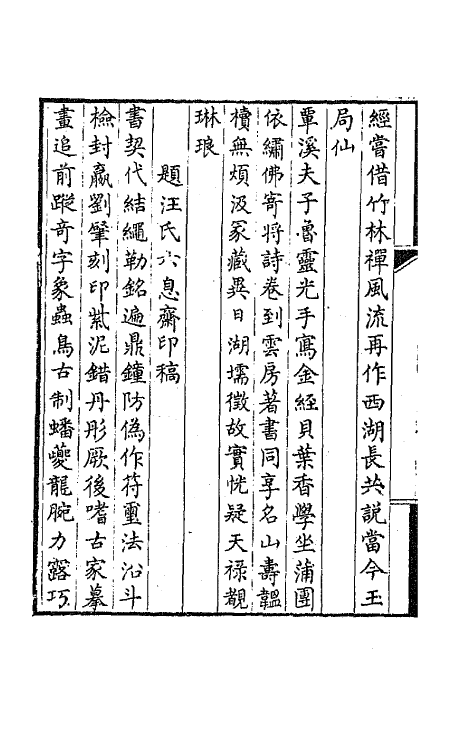 經嘗借竹林禪風流再作西湖長共說當今玉
局仙
覃溪夫子魯靈光手寫金經貝葉香學坐蒲團
依繡佛寄將詩卷到雲房著書同享名山壽韞
櫝無煩汲冢藏異日湖壖徵故實恍疑天祿覩
琳琅
題汪氏六息齋印稿
書契代結繩勒銘遍鼎鐘防偽作符璽法沿斗
檢封嬴劉肇刻印紫泥錯丹彤厥後嗜古家摹
畫追前蹤奇字象蟲鳥古制蟠夔龍腕力露巧